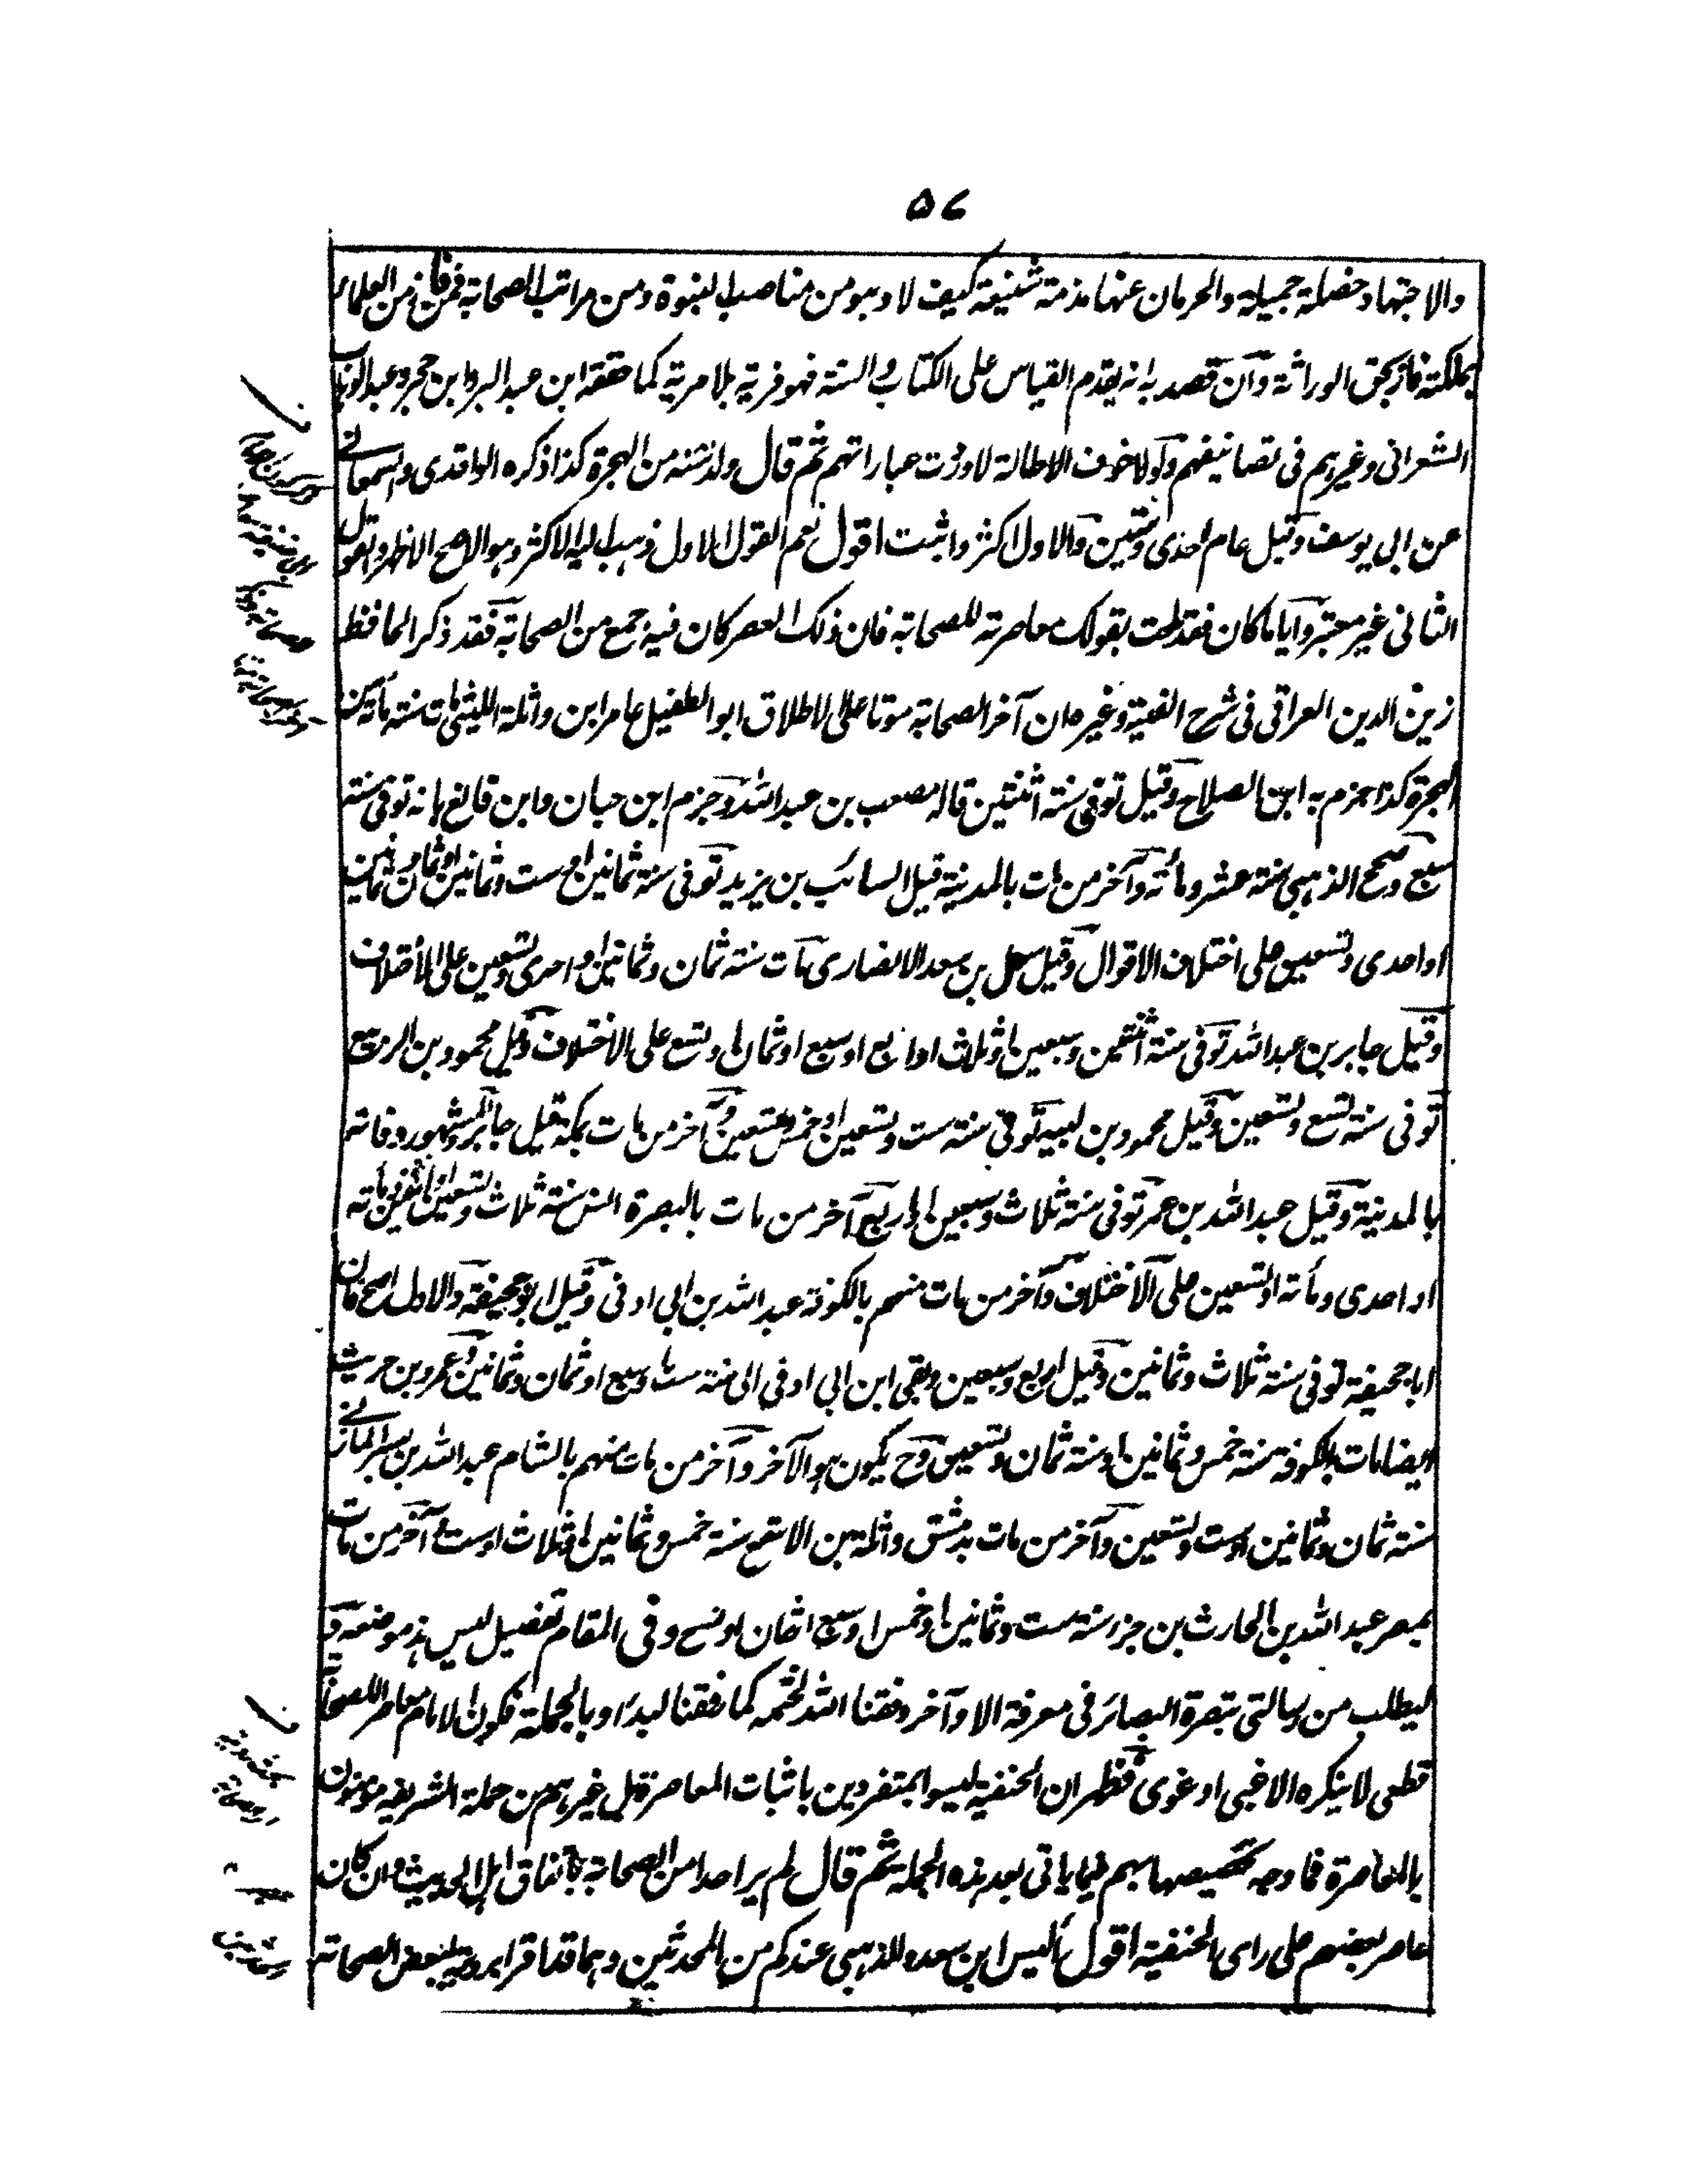 ۵۷
والاجتهاد خصلة جميلة والحرمان عنها مذمة شنيعة كيف لا وهو من مناصب النبوة ومن مراتب الصحابة فمن فاز من العلماء
بملكته فاز بحق الوراثة وان قصد به انه يقدم القياس على الكتاب والسنة فهو فرية بلا مرية كما حققه ابن عبد البر وابن حجر وعبد الوهاب
الشعرانى وغيرهم فى تصانيفهم ولولا خوف الاطالة لاوردت عباراتهم ثم قال ولد سنة من الهجرة كذا ذكره الواقدى والسمعانى
عن ابى يوسف وقيل عام احدى وستين والاول اكثر واثبت اقول نعم القول الاول ذهب اليه الاكثر وهو الاصح الاظهر والقول
الثانى غير معتبر وايا ما كان فقد بقولك معاصرته للصحابة فان ذلك العصر كان فيه جمع من الصحابة فقد ذكر الحافظ
زين الدين العراقى فى شرح الفيته وغيره ان آخر الصحابة موتا على الاطلاق ابو الطفيل عامر ابن واثلة الليثى مات سنة مائة من
الهجرة كذا جزم به ابن الصلاح وقيل توفى سنة اثنتين قاله مصعب بن عبد الله وجزم ابن حبان وابن قانع بانه توفى سنة
سبع وصحح الذهبى سنة عشر ومائة وآخر من مات بالمدينة قيل السائب بن يزيد توفى سنة ثمانين او ست وثمانين او ثمان وثمانين
او احدى وتسعين على اختلاف الاقوال وقيل سهل بن سعد الانصارى مات سنة ثمان وثمانين او احدى وتسعين على الاختلاف
وقيل جابر بن عبد الله توفى سنة اثنتين وسبعين او ثلاث او اربع او سبع او ثمان او تسع على الاختلاف وقيل محمود بن الربيع
توفى سنة تسع وتسعين وقيل محمود بن لبيد توفى سنة ست وتسعين او خمس وتسعين وآخر من مات بمكة قيل جابر والمشهور وفاته
بالمدينة وقيل عبد الله بن عمر توفى سنة ثلاث وسبعين او اربع وآخر من مات بالبصرة انس سنة ثلاث وتسعين او اثنتين او مائة
او احدى ومائة او تسعين على الاختلاف وآخر من مات منهم بالكوفة عبد الله بن ابى اوفى وقيل ابو جحيفة والاول اصح فان
ابا جحيفة توفى سنة ثلاث وثمانين وقيل اربع وسبعين وبقى ابن ابى اوفى الى سنة ست او سبع او ثمان وثمانين وعمرو بن حريث
ايضا مات بالكوفة سنة خمس وثمانين او سنة ثمان وتسعين وح يكون هو الآخر وآخر من مات منهم بالشام عبد الله بن بسر المازنى
سنة ثمان وثمانين او ست وتسعين وآخر من مات بدمشق واثلة بن الاسقع سنة خمس وثمانين او ثلاث او ست وآخر من مات
بمصر عبد الله بن الحارث بن جزء سنة ست وثمانين او خمس او سبع او ثمان او تسع وفى المقام تفصيل ليس هذا موضعه
ليطلب من رسالتى تبصرة البصائر فى معرفة الاواخر وفقنا الله لختمه كما وفقنا لبدئه وبالجملة فكون الامام معاصرا للصحابة
قطعى لا ينكره الا غبى او غوى فظهر ان الحنفية ليسوا بمتفردين باثبات المعاصرة بل غيرهم من حملة الشريعة مؤمنون
بالمعاصرة فما وجه تخصيصها بهم فيما ياتى بعد هذه الجملة ثم قال لم ير احدا من الصحابة باتفاق اهل الحديث وان كان
عاصر بعضهم على راى الحنفية اقول أليس ابن سعد والذهبى عندكم من المحدثين وهما قد اقرا برويته لبعض الصحابة